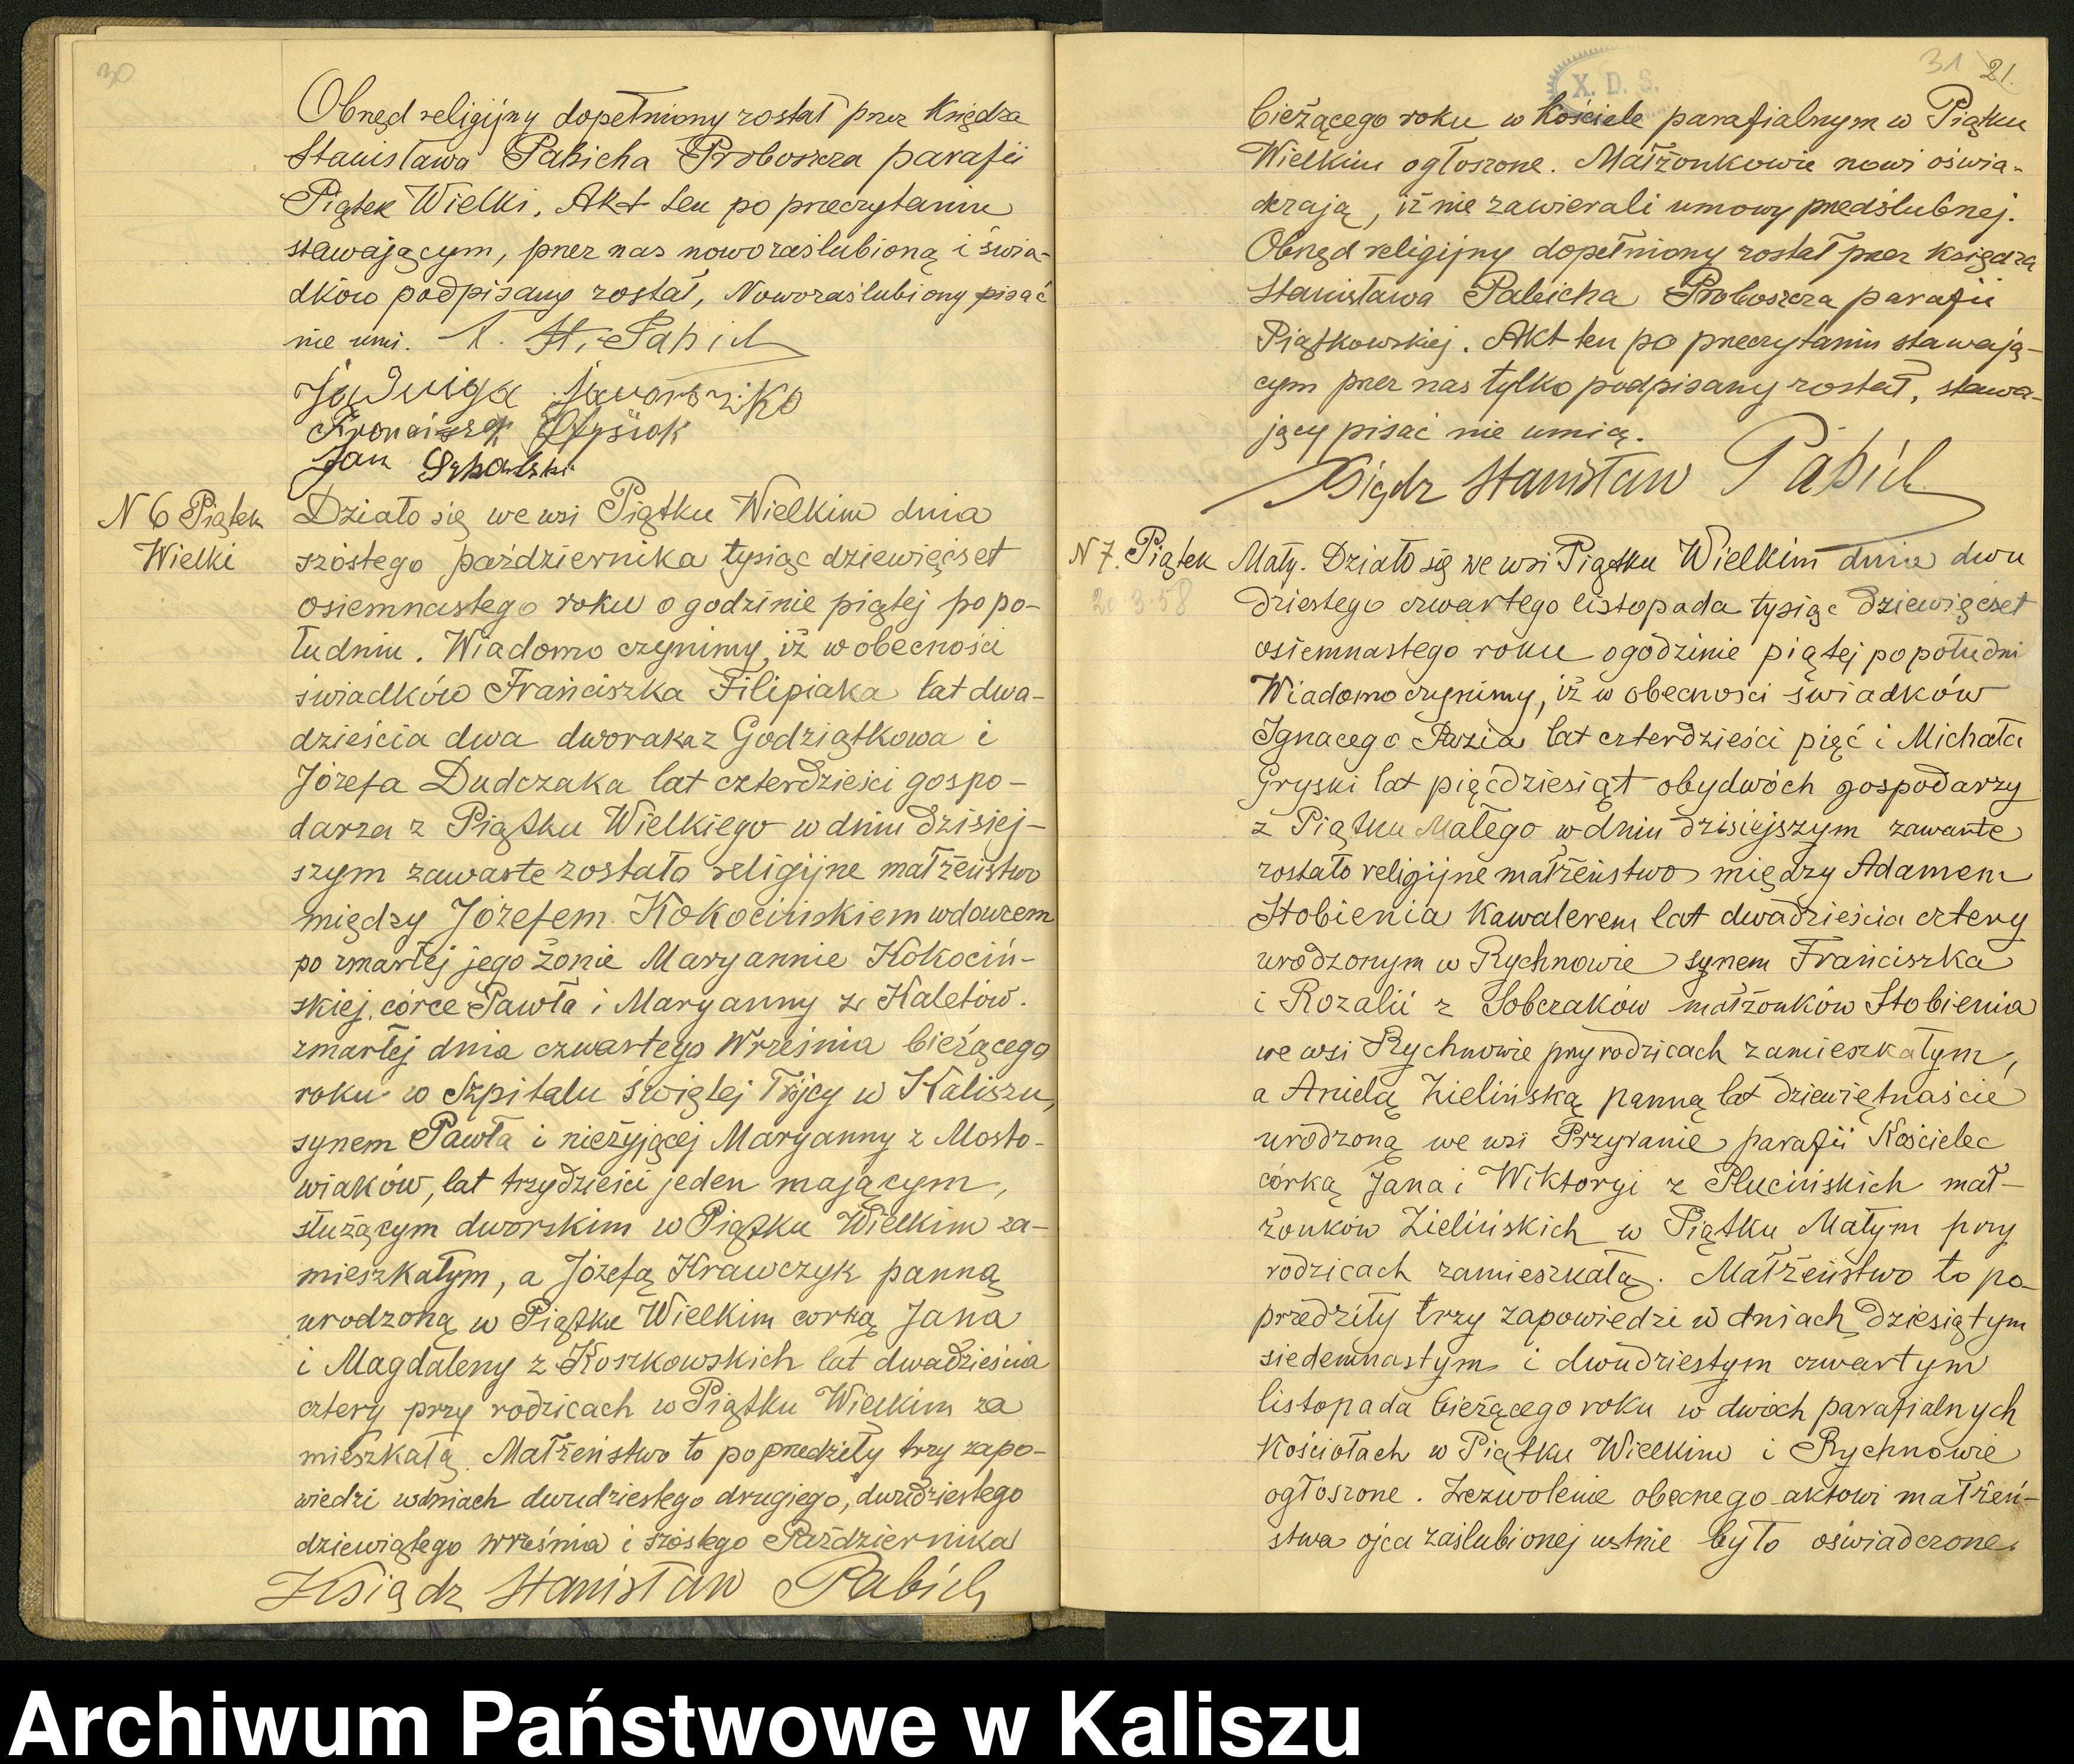 30
Obrzęd religijny dopełniony został przez Księdza
Stanisława Pabicha Proboszcza parafii
Piątek Wielki. Akt ten po przeczytaniu
stawającym, przez nas nowozaślubioną i świa-
dków podpisany został, Nowozaślubiony pisać
nie umi. X. St. Pabich
Jadwiga
Jan
N 6 Piątek
Wielki
Działo się we wsi Piątku Wielkim dnia
szóstego października tysiąc dziewięćset
osiemnastego roku o godzinie piątej popo-
łudniu. Wiadomo czynimy, iż w obecności
świadków Franciszka Filipiaka lat dwa-
dzieścia dwa dworaka z Godziątkowa i
Józefa Dudczaka lat czterdzieści gospo-
darza z Piątku Wielkiego w dniu dzisiej-
szym zawarte zostało religijne małżeństwo
między Józefem Kokocińskiem wdowcem
po zmarłej jego żonie Maryannie Kokociń-
skiej, córce Pawła i Maryanny z Kaletów.
zmarłej dnia czwartego Września bieżącego
roku w Szpitalu Świętej Trójcy w Kaliszu,
synem Pawła i nieżyjącej Maryanny z Mosto-
wiaków, lat trzydzieści jeden mającym,
służącym dworskim w Piątku Wielkim za-
mieszkałym, a Józefą Krawczyk panną
urodzoną w Piątku Wielkim corką Jana
i Magdaleny z Koszkowskich lat dwadzieścia
cztery przy rodzicach w Piątku Wielkim za
mieszkałą. Małżeństwo to poprzedziły trzy zapo-
wiedzi w dniach dwudziestego drugiego, dwudziestego
dziewiątego września i szóstego Października
Ksiądz Stanisław Pabich
31 21.
X. D. S.
bieżącego roku w kościele parafialnym w Piątku
Wielkim ogłoszone. Małżonkowie nowi oświa-
dczają, iż nie zawierali umowy przedślubnej.
Obrzęd religijny dopełniony został przez księdza
Stanisława Pabicha Proboszcza parafii
Piątkowskiej. Akt ten po przeczytaniu stawają-
cym przez nas tylko podpisany został, stawa-
jący pisać nie umią.
Ksiądz Stanisław Pabich
N 7. Piątek Mały. Działo się we wsi Piątku Wielkim dnia dwu
20.3.58
dziestego czwartego listopada tysiąc dziewięćset
osiemnastego roku o godzinie piątej popołudni
Wiadomo czynimy, iż w obecności świadków
Ignacego Pazia lat czterdzieści pięć i Michała
Gryski lat pięćdziesiąt obydwóch gospodarzy
z Piątku Małego w dniu dzisiejszym zawarte
zostało religijne małżeństwo między Adamem
Stobienia Kawalerem lat dwadzieścia cztery
urodzonym w Rychnowie synem Franciszka
i Rozalii z Sobczaków małżonków Stobienia
we wsi Rychnowie przy rodzicach zamieszkałym,
a Anielą Zielińską panną lat dziewiętnaście
urodzoną we wsi Przyranie parafii Kościelec
córką Jana i Wiktoryi z Plucińskich mał-
żonków Zielińskich w Piątku Małym przy
rodzicach zamieszkałą. Małżeństwo to po-
przedziły trzy zapowiedzi w dniach dziesiątym
siedemnastym i dwudziestym czwartym
listopada bieżącego roku w dwóch parafialnych
Kościołach w Piątku Wielkim i Rychnowie
ogłoszone. Zezwolenie obecnego aktowi małżeń-
stwa ojca zaślubionej ustnie było oświadczone.
Archiwum Państwowe w Kaliszu